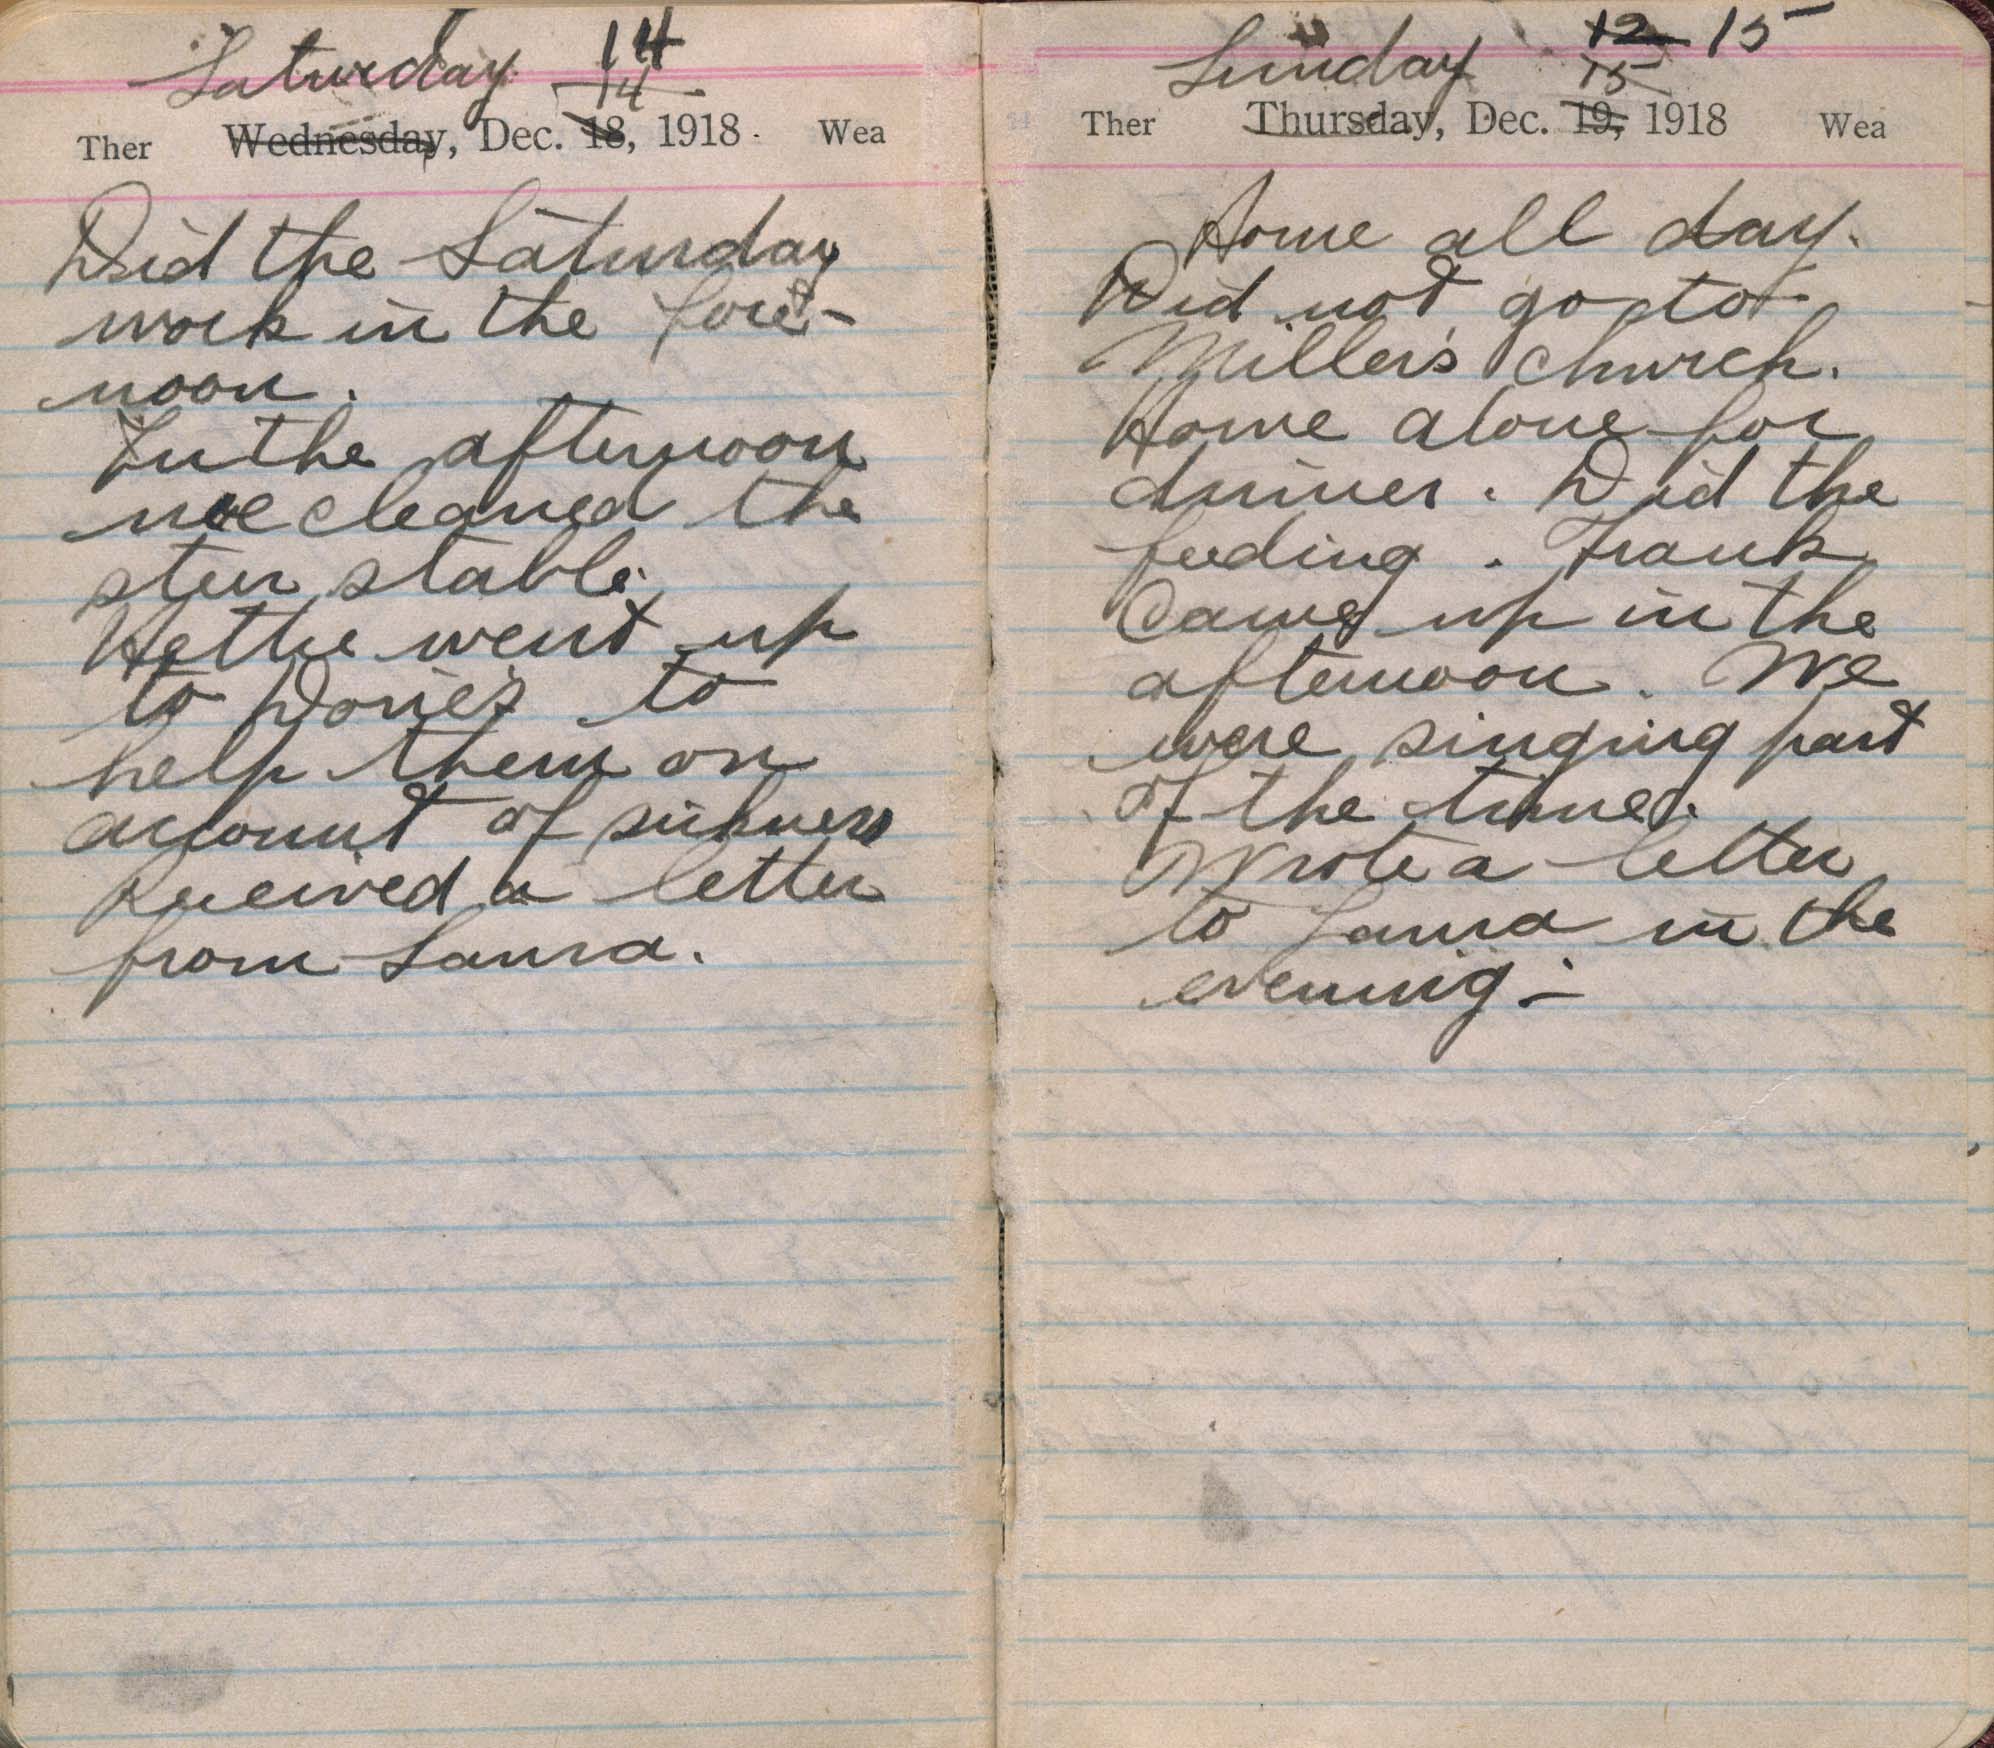 Saturday 14
14
Ther Wednesday, Dec. 18, 1918 Wea
Did the Saturday
work in the fore-
noon.
In the afternoon
we cleaned the
steer stable.
Hettie went up
to Dorie's to
help them on
account of sickness
Received a letter
from Laura.
Sunday 12 15
15
Ther Thursday, Dec. 19, 1918 Wea
Home all day.
Did not go to
Miller's church.
Home alone for
dinner. Did the
feeding. Frank
came up in the
afternoon. We
were singing part
of the time.
Wrote a letter
to Laura in the
evening.